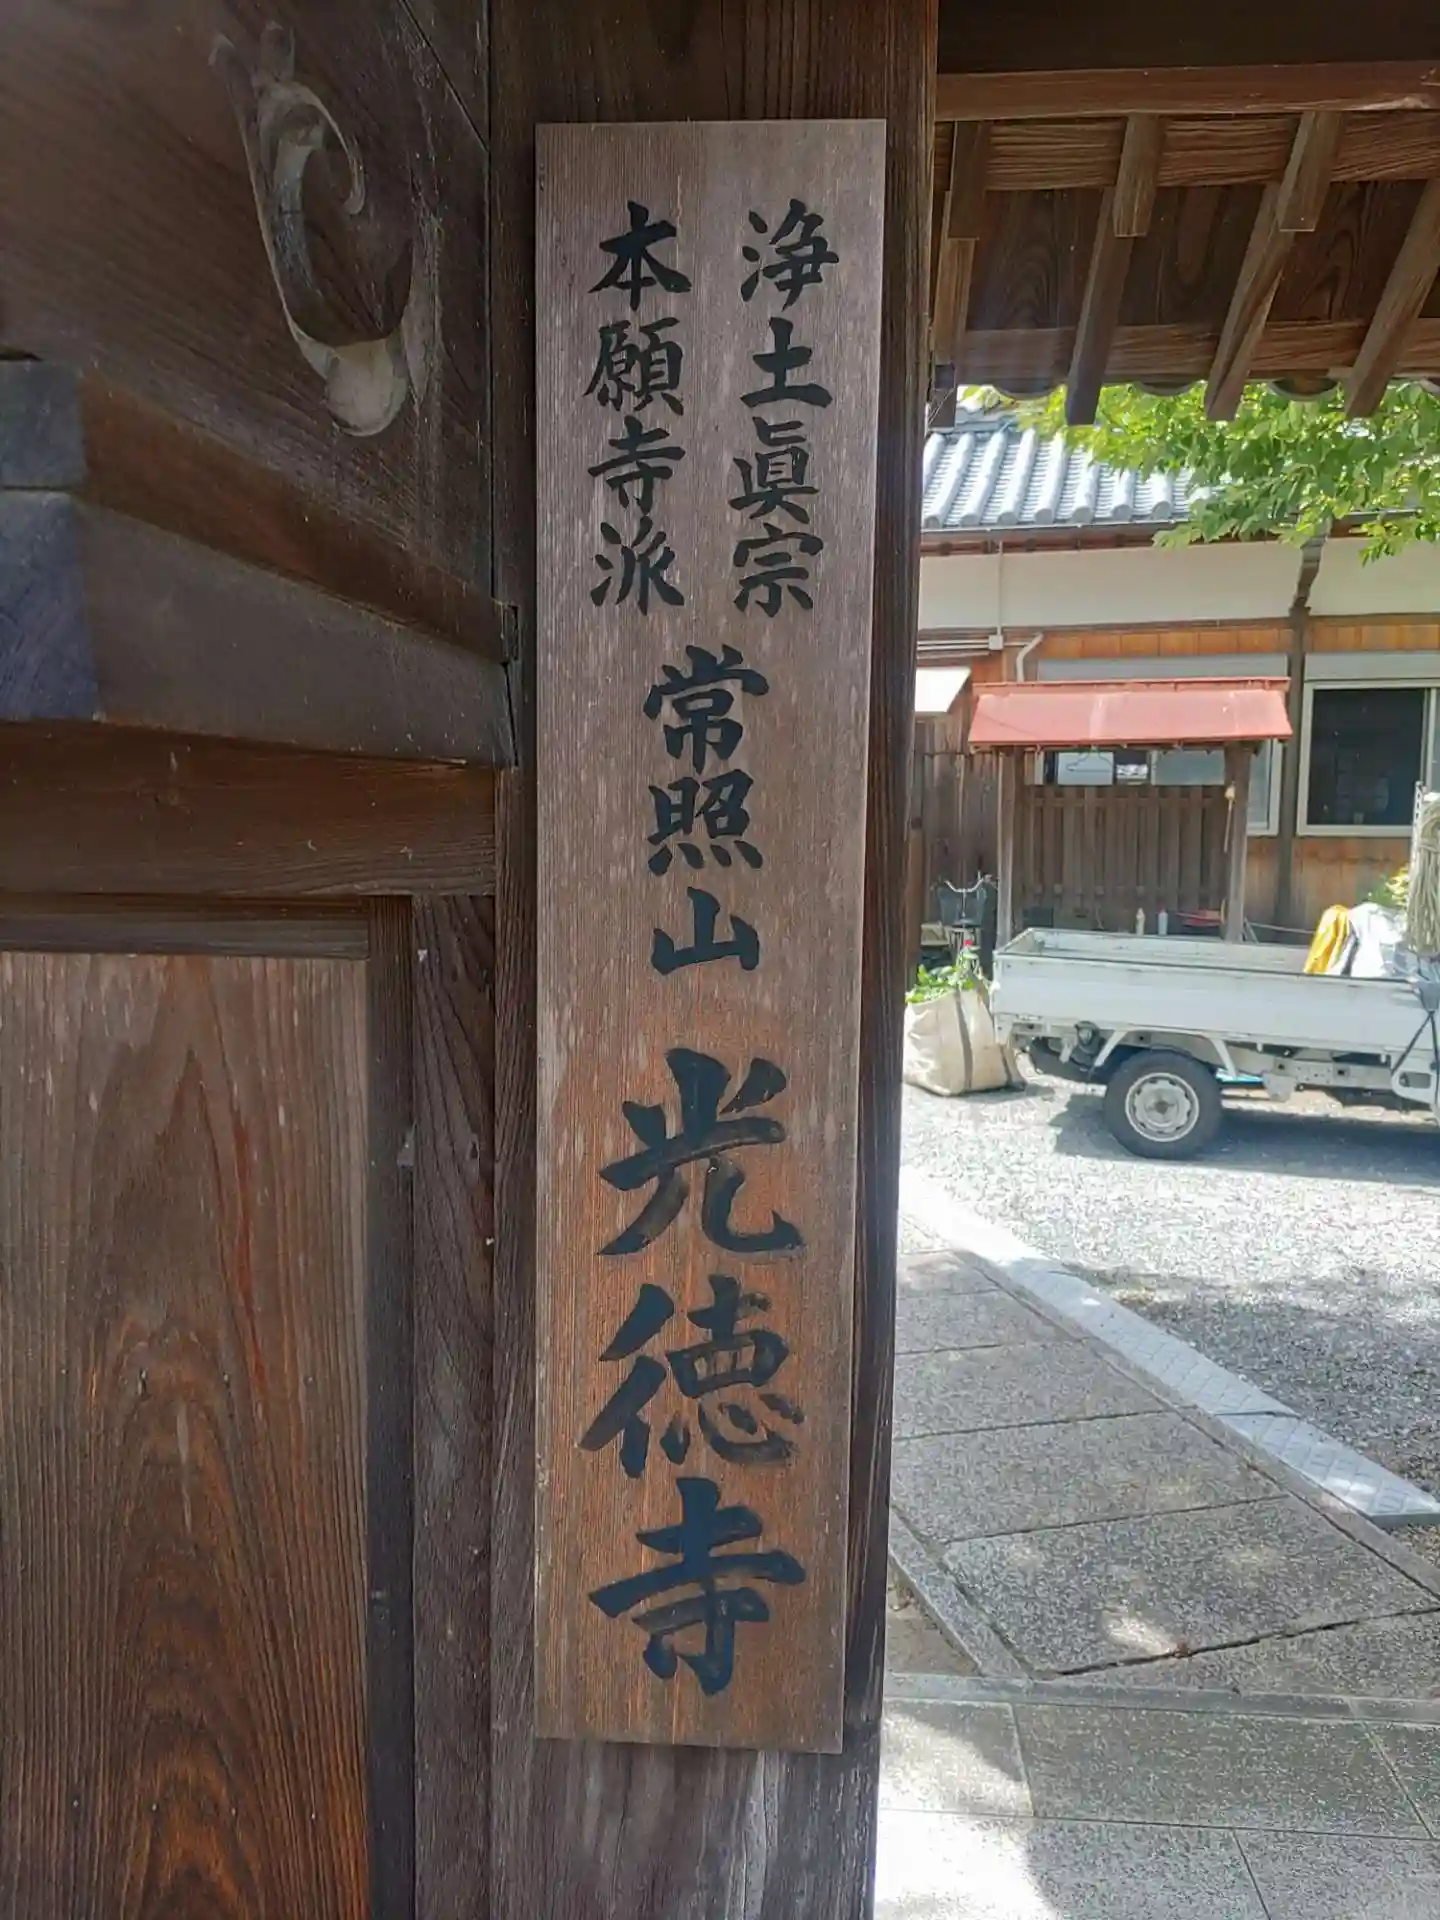 浄土眞宗
本願寺派
常照山
光徳寺